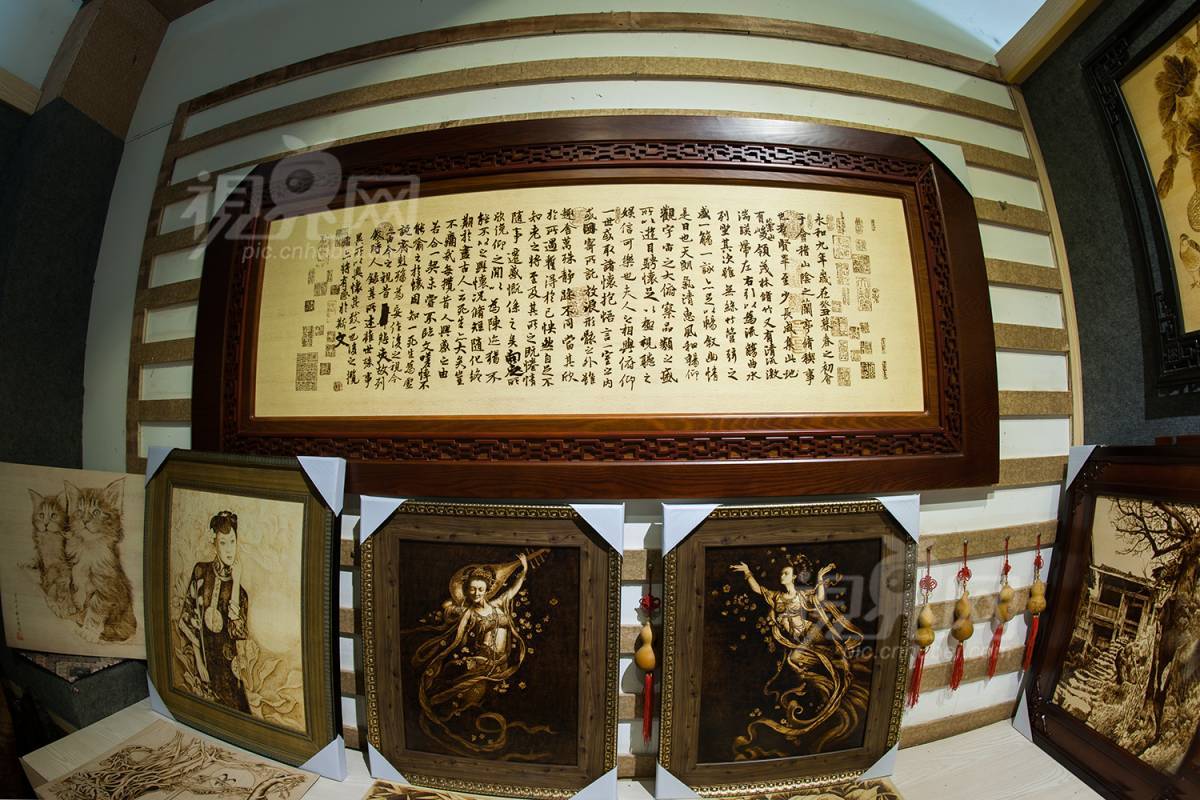 永和九年歲在癸丑暮春之初會
于會稽山陰之蘭亭脩稧事
也群賢畢至少長咸集此地
有崇山峻領茂林脩竹又有清流激
湍暎帶左右引以為流觴曲水
列坐其次雖無絲竹管弦之
盛一觴一詠亦足以暢敘幽情
是日也天朗氣清惠風和暢仰
觀宇宙之大俯察品類之盛
所以遊目騁懷足以極視聽之
娛信可樂也夫人之相與俯仰
一世或取諸懷抱悟言一室之內
或因寄所託放浪形骸之外雖
趣舍萬殊靜躁不同當其欣
於所遇蹔得於己快然自足不
知老之將至及其所之既惓情
隨事遷感慨係之矣向之所
欣俛仰之間以為陳迹猶不
能不以之興懷況脩短隨化終
期於盡古人云死生亦大矣豈
不痛哉每攬昔人興感之由
若合一契未嘗不臨文嗟悼不
能喻之於懷固知一死生為虛
誕齊彭殤為妄作後之視今
亦由今之視昔悲夫故列
敘時人錄其所述雖世殊事
異所以興懷其致一也後之攬
者亦將有感於斯文
视界网
pic.cnhubei.com